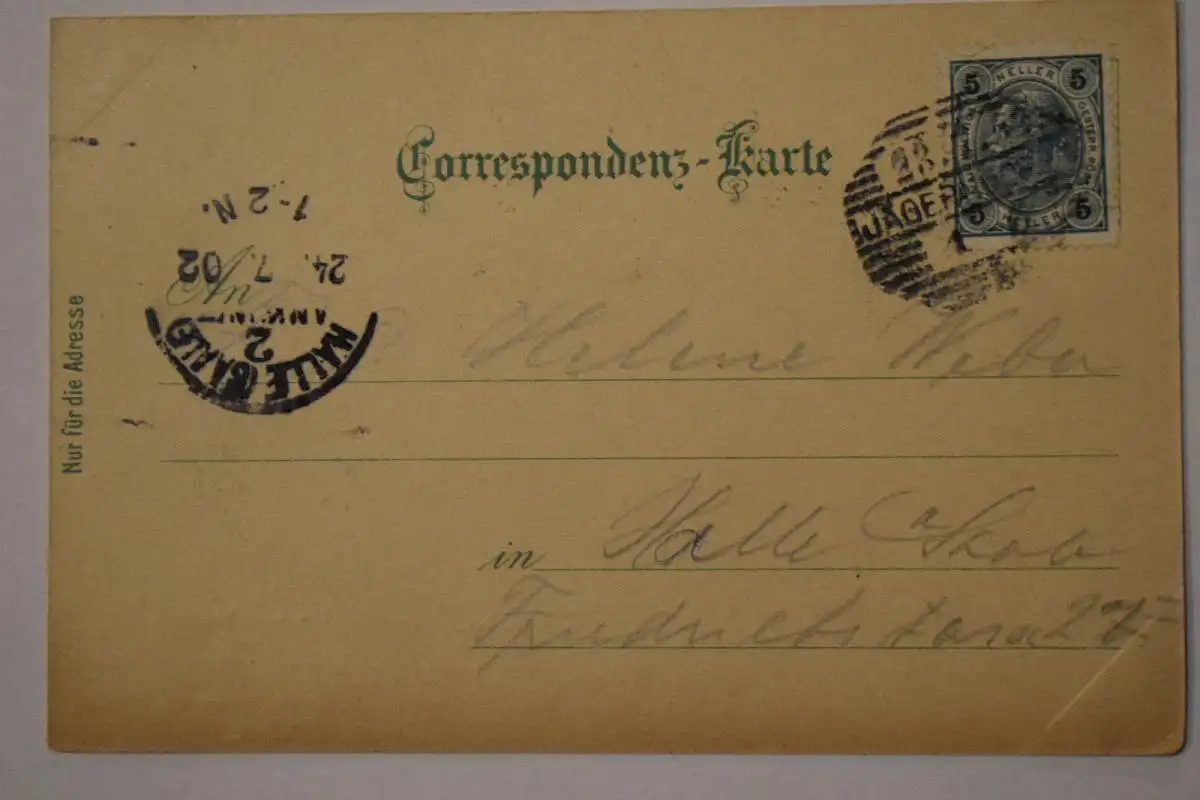 Correspondenz-Karte
5 HELLER 5
5 HELLER 5
23
JÄGER
1-2 N.
24. 7. 02
2
HALLE (SAALE)
Nur für die Adresse
An
Helene Weber
in Halle a
27